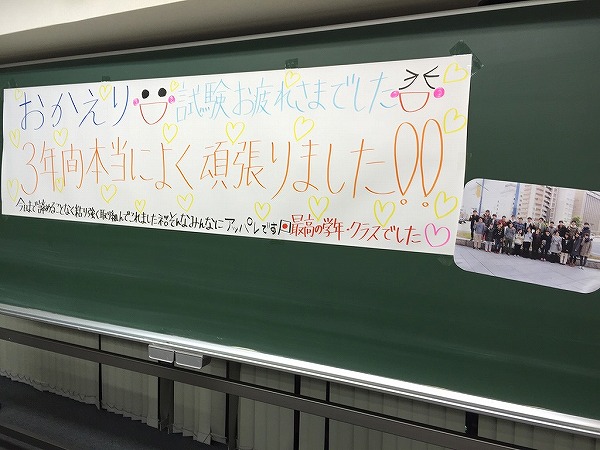 おかえり 試験お疲れさまでした
3年間本当によく頑張りました!!
今日まで諦めることなく粘り強く取り組んでくれました そんなみんなにアッパレです 最高の学年・クラスでした